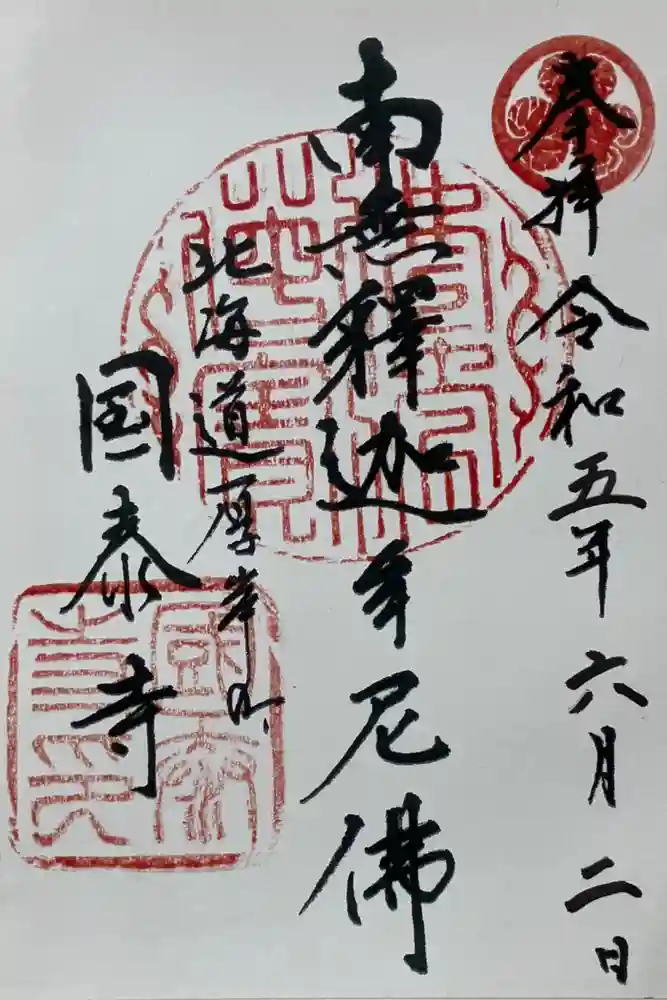 奉拝 令和五年六月二日
南無釋迦牟尼佛
北海道厚岸
国泰寺
國泰